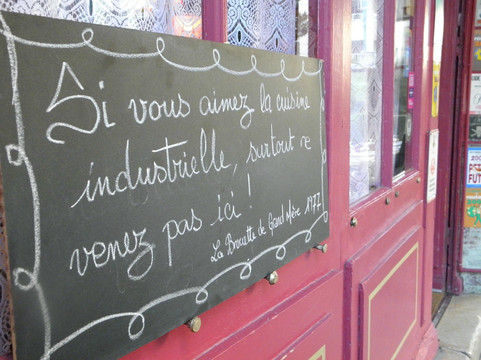 Si vous aimez la cuisine
industrielle, surtout ne
venez pas ici !
La Brouette de Grand Mère 1977